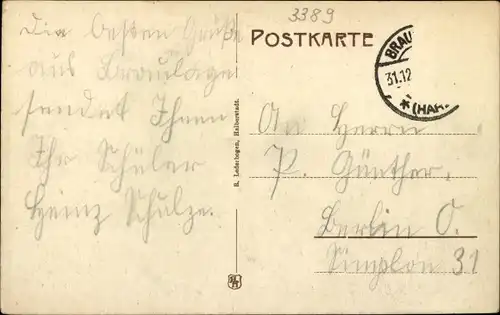 3389
POSTKARTE
BRAU
31.12
* (HAR
Die besten Grüße
aus Braunlage
sendet Ihnen
Ihr Schüler
Heinz Schulze.
R. Lederbogen, Halberstadt.
An Herrn
P. Günther.
Berlin O.
Simplon 31